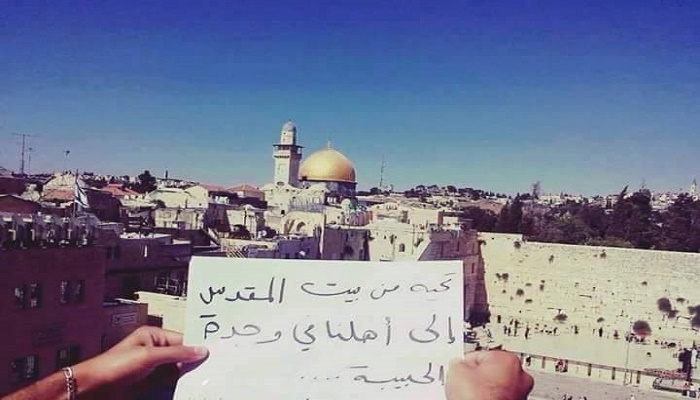 تحية من بيت المقدس
إلى أهلنا في وحدة
الحبيبة ....